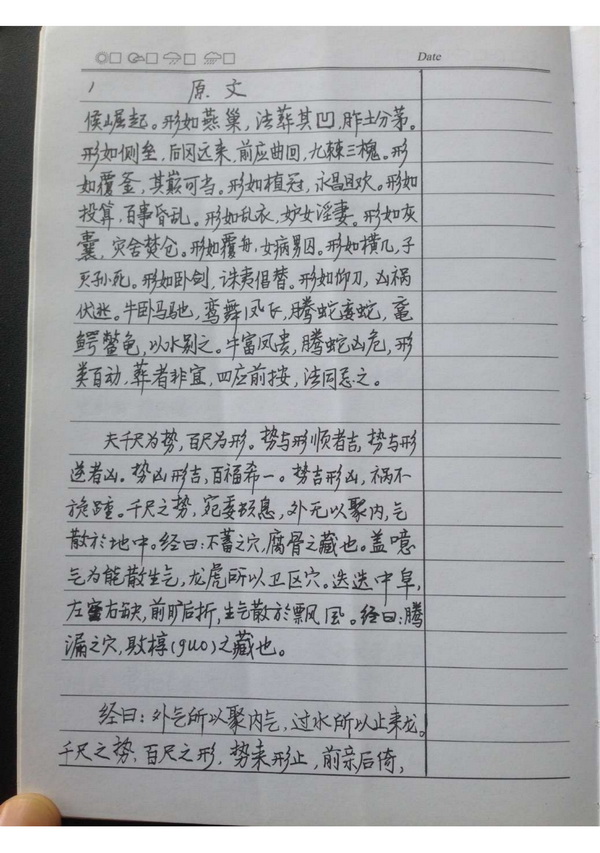 Date
1 原文
侯崛起。形如燕巢,法葬其凹,胙土分茅。
形如侧垒,后冈远来,前应曲回,九棘三槐。形
如覆釜,其巅可当。形如植冠,永昌且欢。形如
投算,百事昏乱。形如乱衣,妒女淫妻。形如灰
囊,灾舍焚仓。形如覆舟,女病男囚。形如横几,子
灭孙死。形如卧剑,诛夷偪替。形如仰刀,凶祸
伏逃。牛卧马驰,鸾舞凤飞,腾蛇委蛇,鼋
鳄鳖龟,以水别之。牛富凤贵,腾蛇凶危,形
类百动,葬者非宜,四应前按,法同忌之。
夫千尺为势,百尺为形。势与形顺者吉,势与形
逆者凶。势凶形吉,百福希一。势吉形凶,祸不
旋踵。千尺之势,宛委顿息,外无以聚内,气
散於地中。经曰:不蓄之穴,腐骨之藏也。盖噫
气为能散生气,龙虎所以卫区穴。迭迭中阜,
左空右缺,前旷后折,生气散於飘风。经曰:腾
漏之穴,败椁(guo)之藏也。
经曰:外气所以聚内气,过水所以止来龙。
千尺之势,百尺之形,势来形止,前亲后倚,